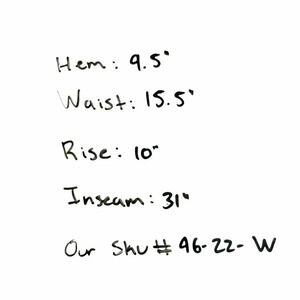 Hem: 9.5"
Waist: 15.5"
Rise: 10"
Inseam: 31"
Our Sku# 96-22-W